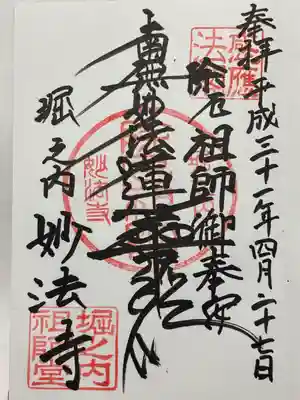 奉拝 平成三十一年四月二十七日
除厄祖師御奉安
南無妙法蓮華経
堀之内 妙法寺
妙法寺
堀之内
祖師堂